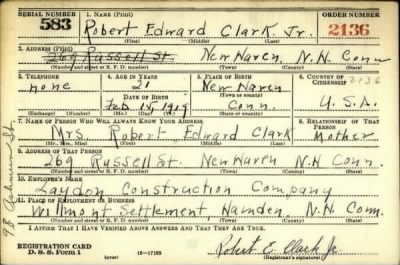 SERIAL NUMBER 1. NAME (Print) ORDER NUMBER
583 Robert Edward Clark Jr. 2136
(First) (Middle) (Last)
2. ADDRESS (Print)
269 Russell St. New Haven, N.H. Conn
(Number and street or R. F. D. number) (Town) (County) (State)
3. TELEPHONE 4. AGE IN YEARS 5. PLACE OF BIRTH 6. COUNTRY OF CITIZENSHIP
none 21 New Haven 2136
DATE OF BIRTH (Town or county)
Feb 15, 1919 Conn. U.S.A.
(Mo.) (Day) (Yr.) (State or country)
7. NAME OF PERSON WHO WILL ALWAYS KNOW YOUR ADDRESS 8. RELATIONSHIP OF THAT PERSON
Mrs. Robert Edward Clark Mother
(Mr., Mrs., Miss) (First) (Middle) (Last)
9. ADDRESS OF THAT PERSON
269 Russell St. New Haven N.H Conn.
(Number and street or R. F. D. number) (Town) (County) (State)
10. EMPLOYER'S NAME
Laydon Construction Company
11. PLACE OF EMPLOYMENT OR BUSINESS
Wilmont Settlement, Hamden, N.H. Conn.
(Number and street or R. F. D. number) (Town) (County) (State)
I AFFIRM THAT I HAVE VERIFIED ABOVE ANSWERS AND THAT THEY ARE TRUE.
REGISTRATION CARD
D. S. S. FORM 1 (over) 16-17105 Robert E. Clark Jr.